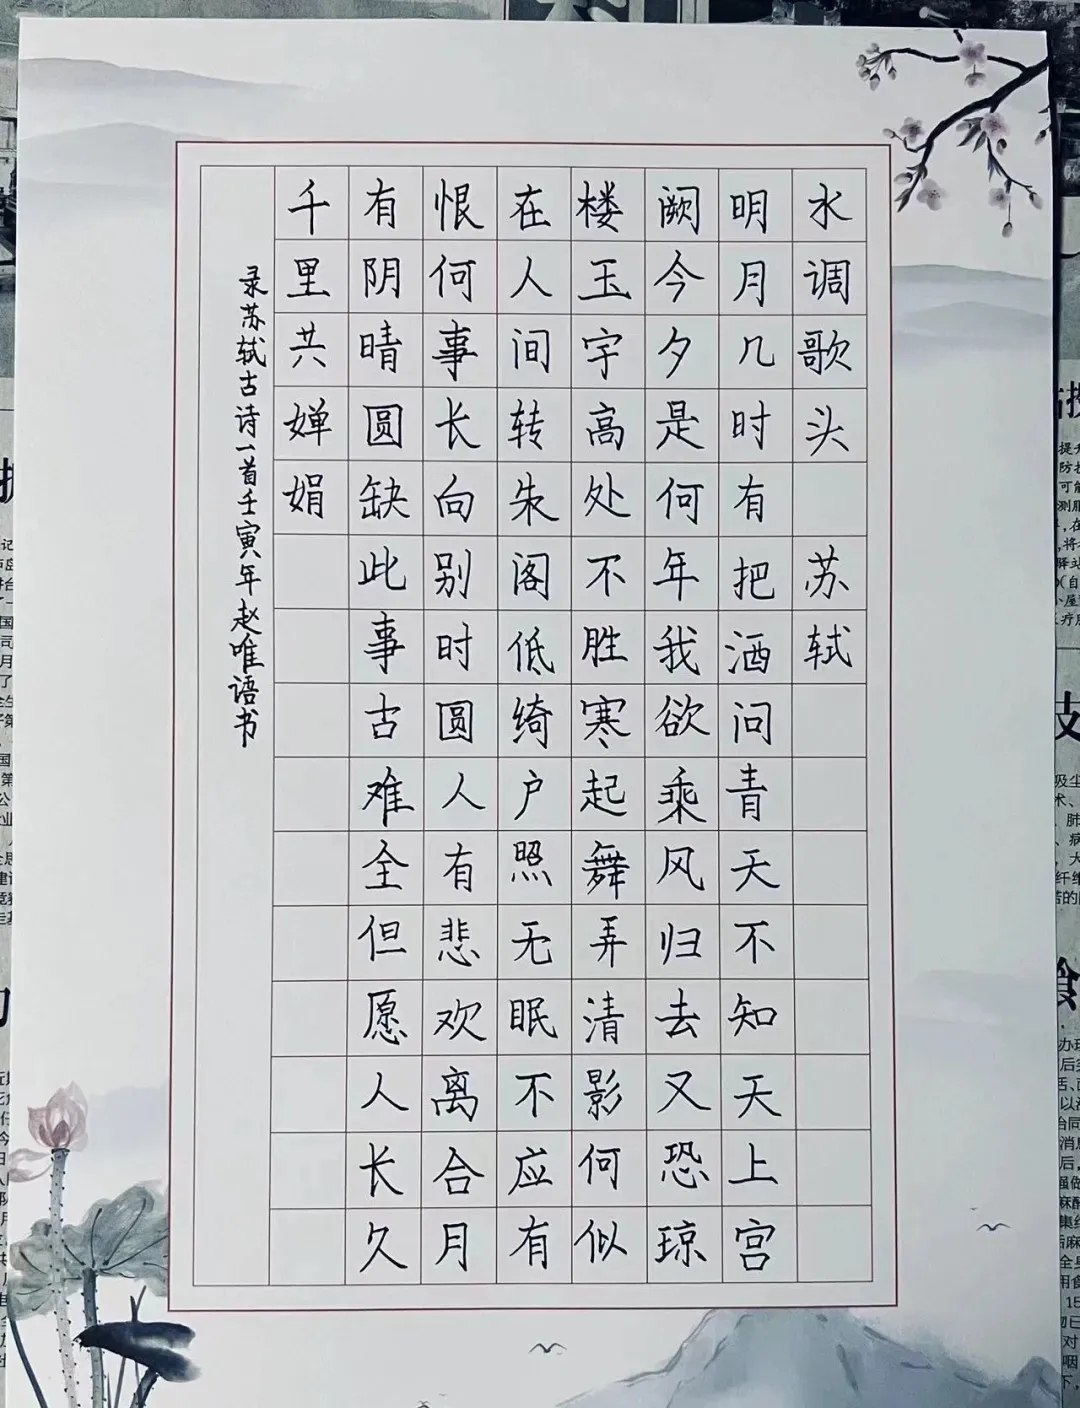 水调歌头 苏轼
明月几时有把酒问青天不知天上宫
阙今夕是何年我欲乘风归去又恐琼
楼玉宇高处不胜寒起舞弄清影何似
在人间转朱阁低绮户照无眠不应有
恨何事长向别时圆人有悲欢离合月
有阴晴圆缺此事古难全但愿人长久
千里共婵娟
录苏轼古诗一首壬寅年赵唯语书